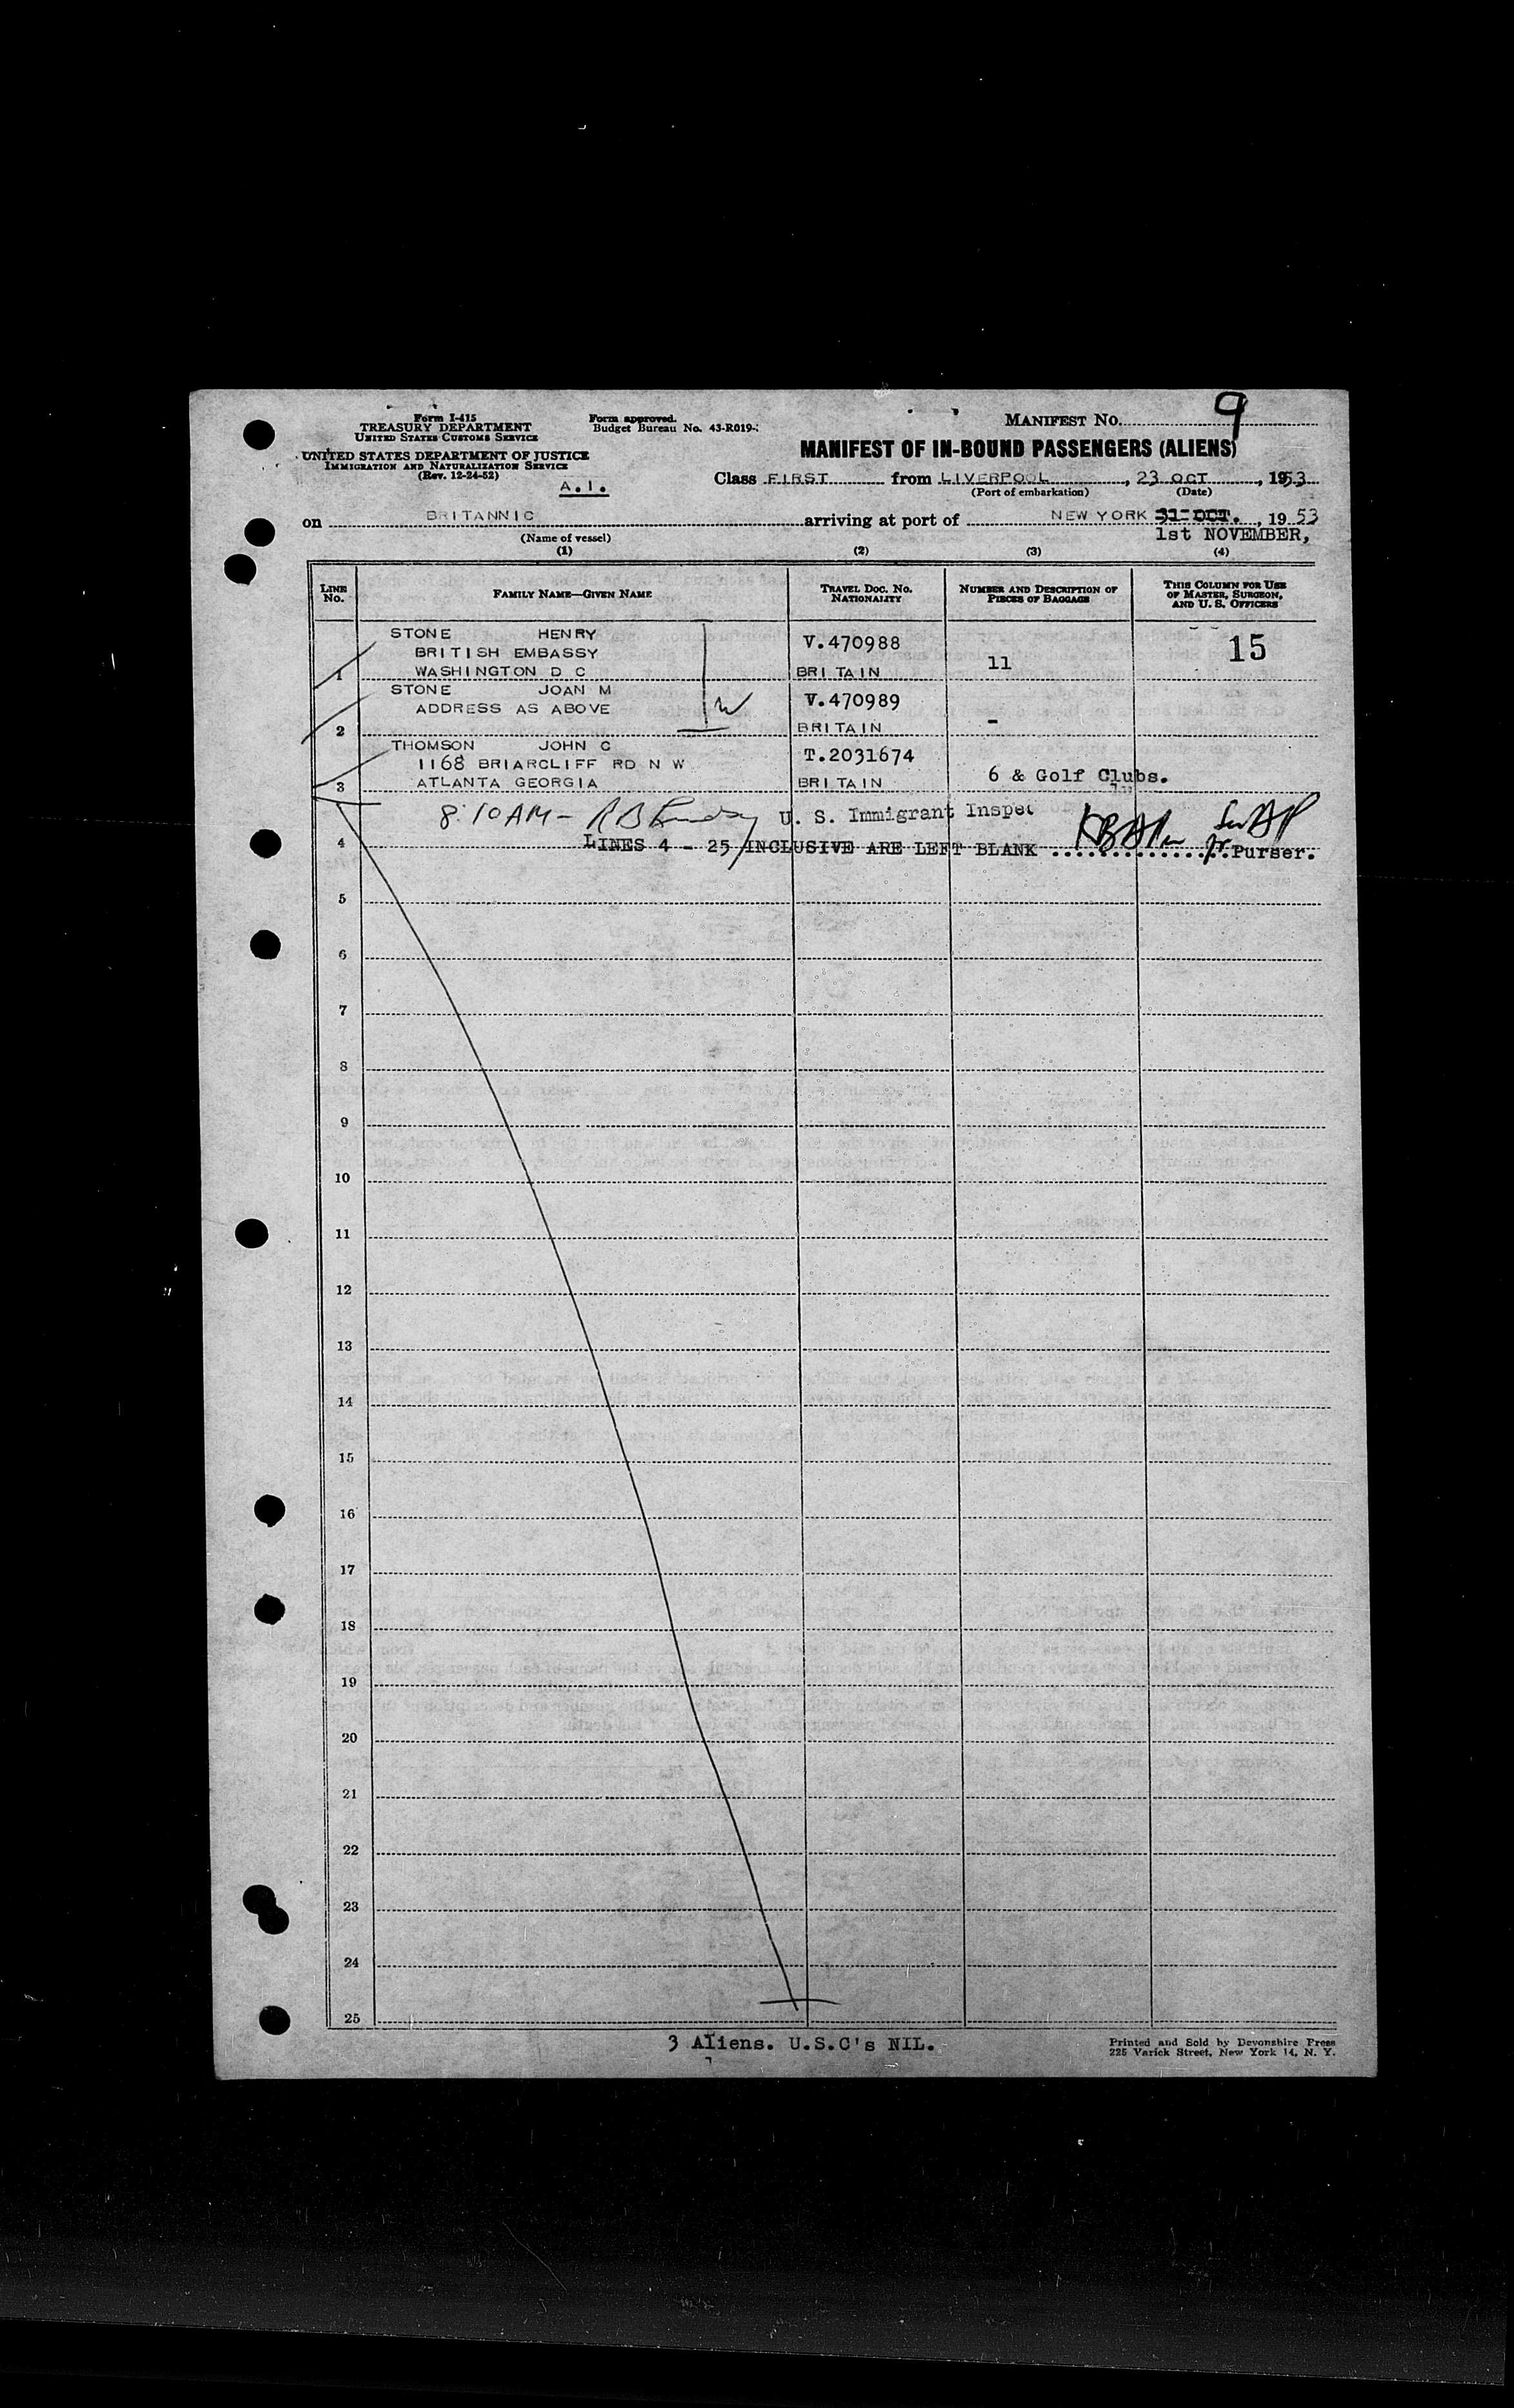 Form I-415
TREASURY DEPARTMENT
UNITED STATES CUSTOMS SERVICE
UNITED STATES DEPARTMENT OF JUSTICE
IMMIGRATION AND NATURALIZATION SERVICE
(Rev. 12-24-52)
A.I.
Form approved.
Budget Bureau No. 43-R019-
MANIFEST No. 9
MANIFEST OF IN-BOUND PASSENGERS (ALIENS)
Class FIRST from LIVERPOOL, 23 OCT, 1953
(Port of embarkation) (Date)
on BRITANNIC arriving at port of NEW YORK 31 OCT., 19 53
1st NOVEMBER,
(Name of vessel)
(1) (2) (3) (4)
LINE No. FAMILY NAME—GIVEN NAME TRAVEL DOC. No. NATIONALITY NUMBER AND DESCRIPTION OF PIECES OF BAGGAGE THIS COLUMN FOR USE OF MASTER, SURGEON, AND U. S. OFFICERS
STONE HENRY V.470988 15
BRITISH EMBASSY
1 WASHINGTON D C BRITAIN 11
STONE JOAN M V.470989
ADDRESS AS ABOVE W
2 BRITAIN -
THOMSON JOHN C T.2031674
1168 BRIARCLIFF RD N W
3 ATLANTA GEORGIA BRITAIN 6 & Golf Clubs.
8:10 AM - U. S. Immigrant Inspec
4 LINES 4 - 25 INCLUSIVE ARE LEFT BLANK ................Purser.
5
6
7
8
9
10
11
12
13
14
15
16
17
18
19
20
21
22
23
24
25
3 Aliens. U.S.C's NIL.
Printed and Sold by Devonshire Press
225 Varick Street, New York 14, N. Y.